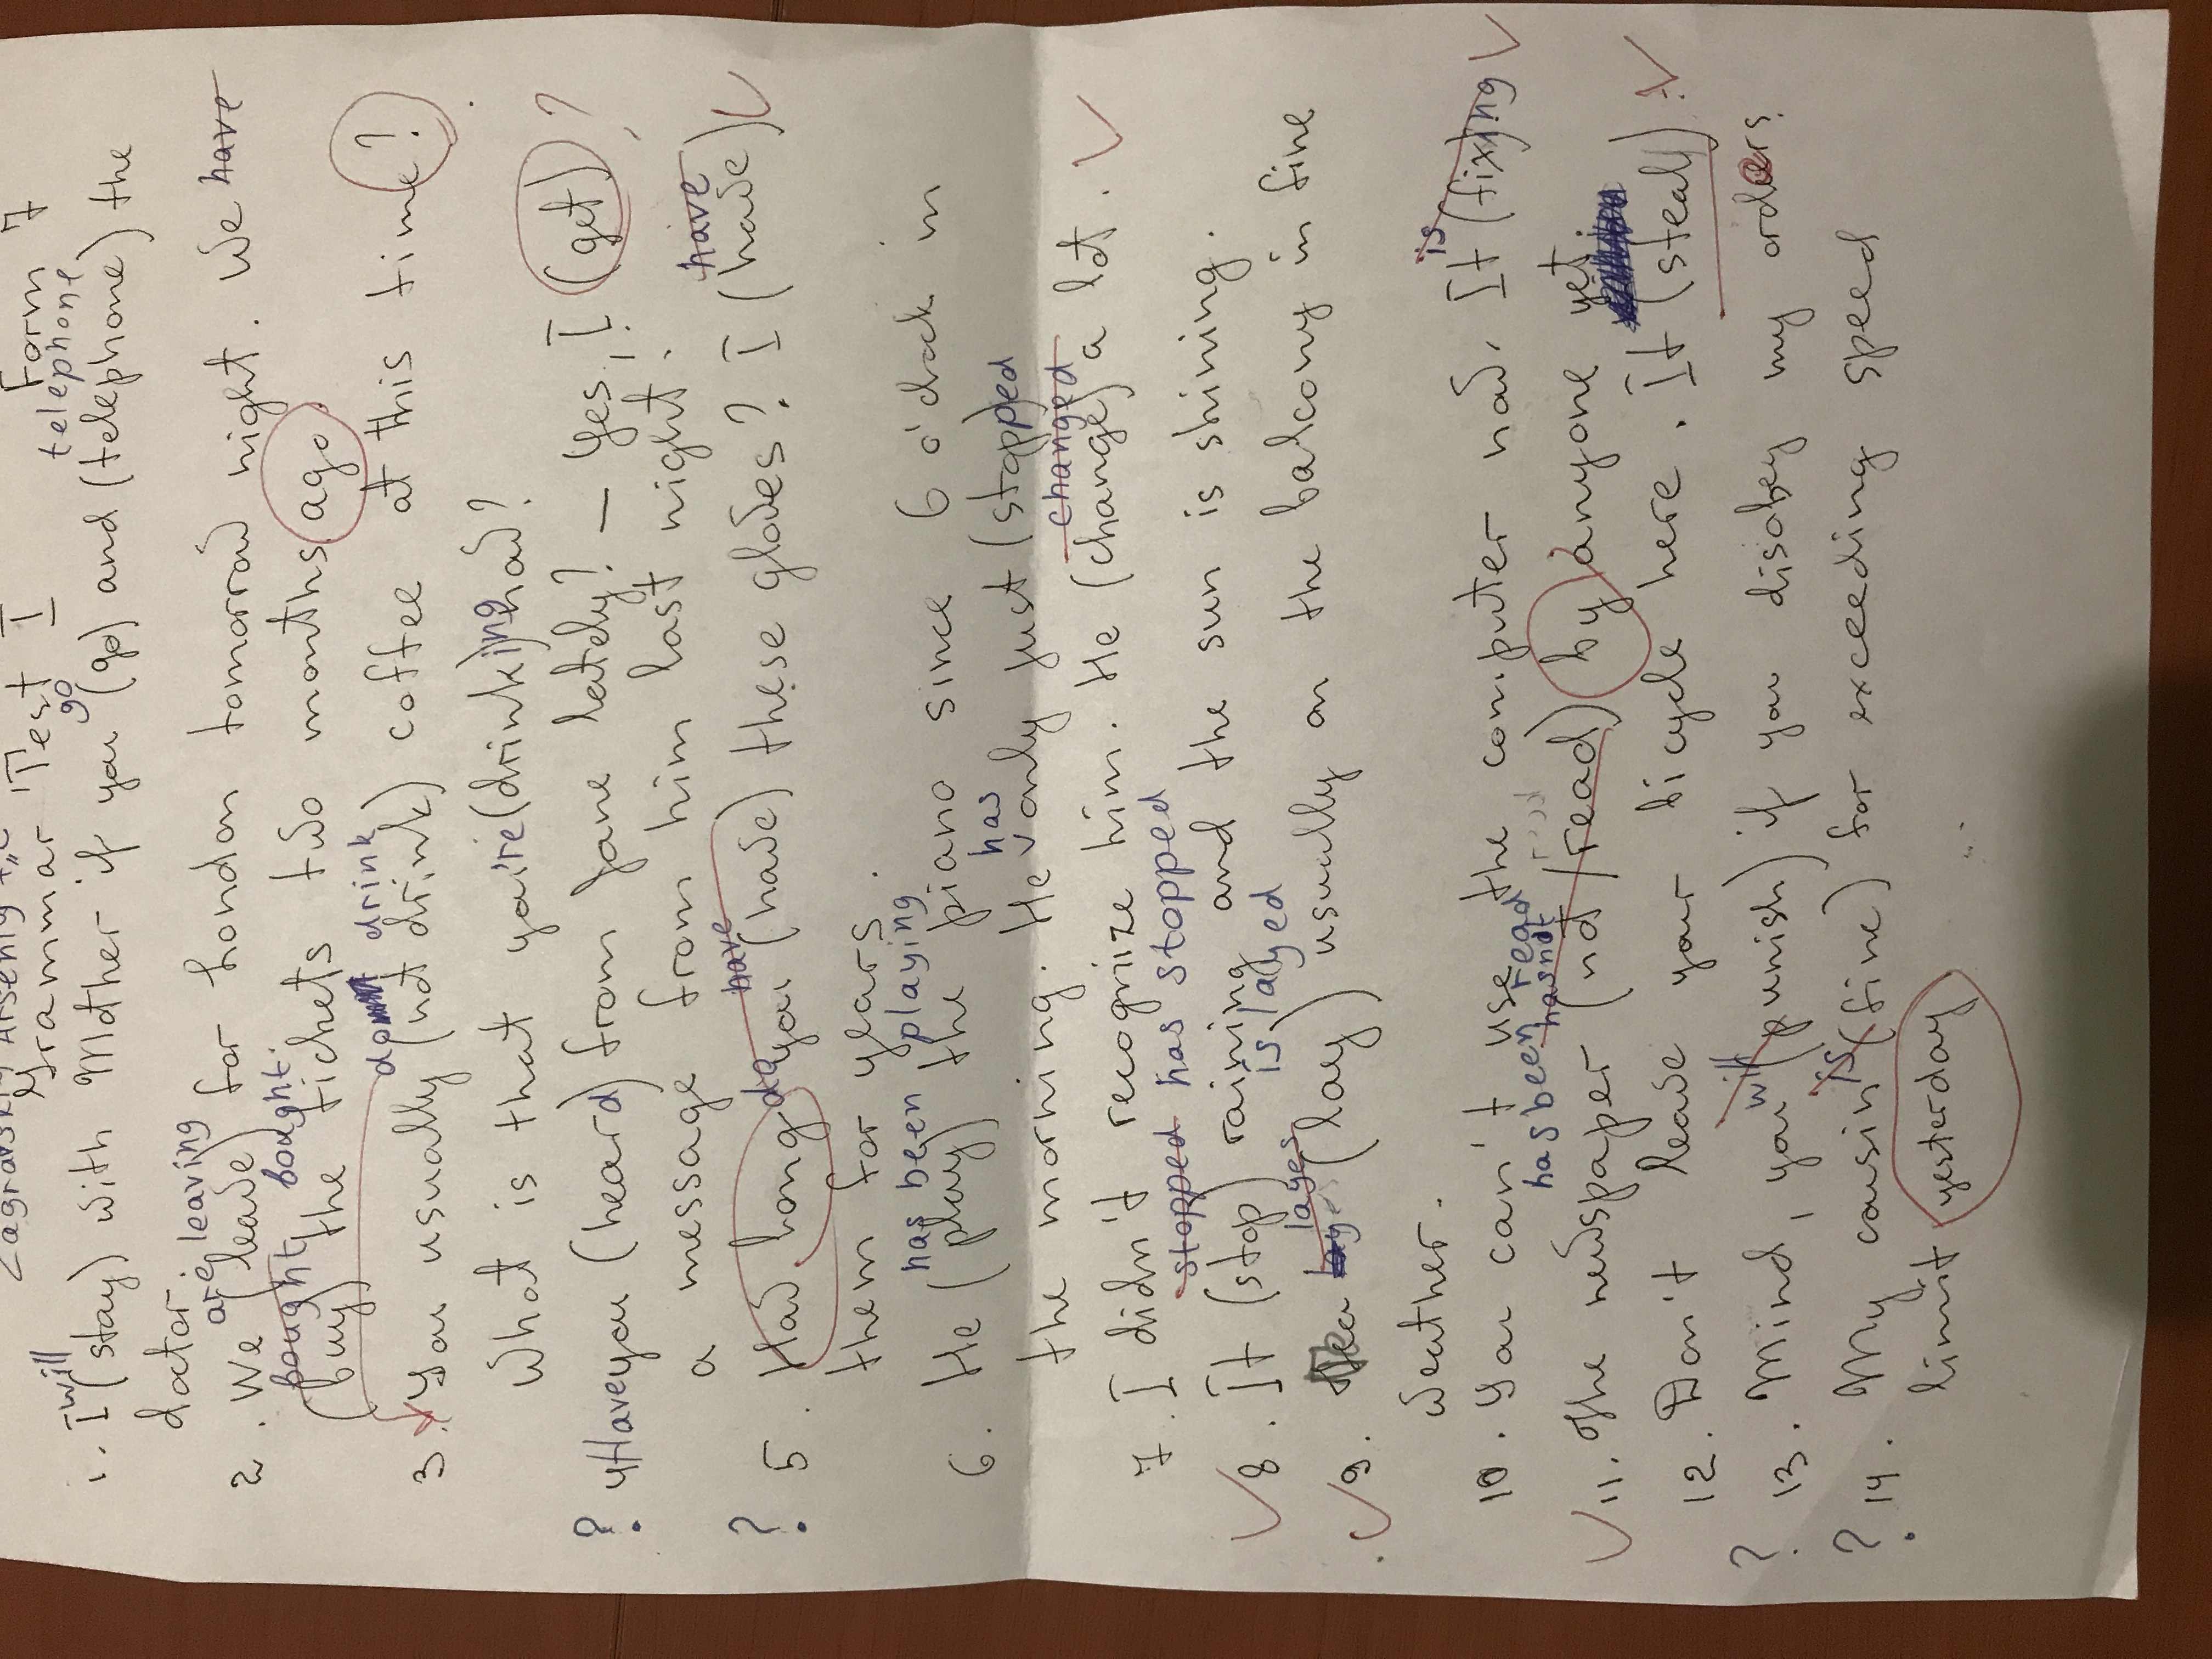 Zagravskiy Arseniy
Grammar Test I Form 7
will go telephone
1. I (stay) with Mother if you (go) and (telephone) the
doctor.
are leaving
2. We (leave) for London tomorrow night. We have
bought bought
(buy) the tickets two months ago.
don't drink
3. You usually (not drink) coffee at this time?
What is that you're (drinking) now?
4. Have you (heard) from Jane lately? – Yes, I (get)
a message from him last night.
do have have
5. How long you (have) these gloves? I (have)
them for years.
has been playing
6. He (play) the piano since 6 o'clock in
has
the morning. He only just (stopped
changed
7. I didn't recognize him. He (change) a lot.
stopped has stopped
8. It (stop) raining and the sun is shining.
lays is layed
9. Tea (lay) usually on the balcony in fine
weather.
is
10. You can't use the computer now. It (fixing
has been read
hasnot
11. The newspaper (not read) by anyone yet
12. Don't leave your bicycle here. It (steal).
will
13. Mind, you (punish) if you disobey my orders.
is
14. My cousin (fine) for exceeding speed
limit yesterday